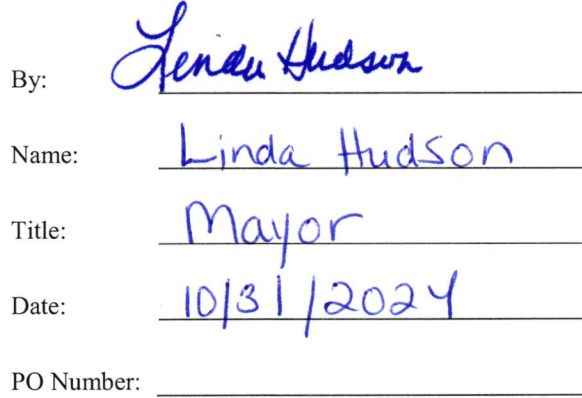 By: Linda Hudson
Name: Linda Hudson
Title: Mayor
Date: 10/31/2024
PO Number: